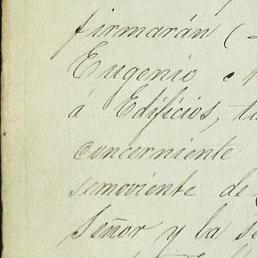 firmarán (
Eugenio
á Edificios,
concerniente
semoviente de
Señor y la